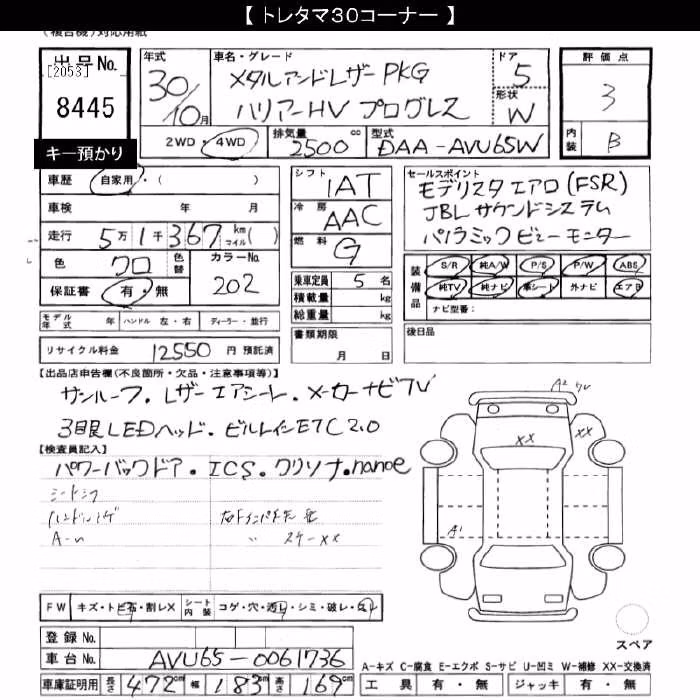 【 トレタマ30コーナー 】
(複合機)対応用紙
出品No.
[2053]
8445
キー預かり
年式
30/10月
車名・グレード
メタルアンドレザーPKG
ハリアーHV プログレス
ドア
5
形状
W
2WD・4WD
排気量
2500cc
型式
DAA-AVU65W
評価点
3
内装
B
車歴 自家用・( )
車検 年 月
走行 5万1千367 km マイル( )
色 クロ 色替 カラーNo. 202
保証書 有・無
シフト 1AT
冷房 AAC
燃料 G
乗車定員 5 名
積載量 kg
総重量 kg
書類期限
月 日
セールスポイント
モデリスタエアロ(FSR)
JBLサウンドシステム
パノラミックビューモニター
装備品
S/R 純A/W P/S P/W ABS
純TV 純ナビ 革シート 外ナビ エアB
ナビ型番:
後日品
モデル年式 年 ハンドル 左・右 ディーラー・並行
リサイクル料金 12550 円 預託済
【出品店申告欄(不良箇所・欠品・注意事項等)】
サンルーフ. レザーエアシート. メーカーナビTV
3眼LEDヘッド. ビルトインETC2.0
【検査員記入】
パワーバックドア. ICS. クリソナ. nanoe
シートシワ
A2
XX
XX
A1
FW キズ・トビ石・割レX シート内装 コゲ・穴・汚レ・シミ・破レ・
登録No.
車台No. AVU65-0061736
スペア
A-キズ C-腐食 E-エクボ S-サビ U-凹ミ W-補修 XX-交換済
車庫証明用 長さ 472 cm 幅 183 cm 高さ 169 cm
工具 有・無 ジャッキ 有・無